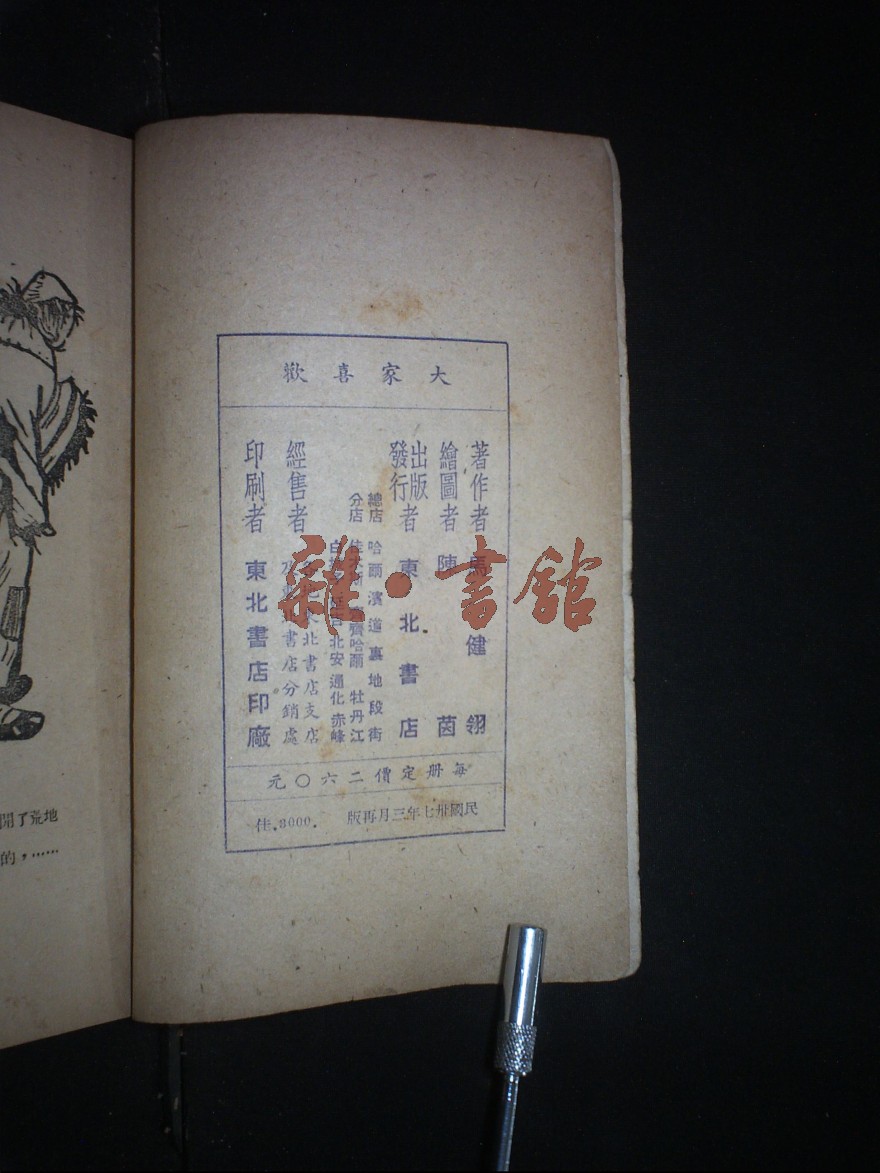 大家喜歡
著作者 馬健翎
繪圖者 陳茵
出版發行者 東北書店
總店 哈爾濱道裏地段街
分店 佳木斯 齊齊哈爾 牡丹江
延吉 北安 通化 赤峰
經售者 東北書店支店
書店分銷處
印刷者 東北書店印廠
每册定價二六〇元
民國卅七年三月再版 佳.8000.
開了荒地
的，……
雜·書館